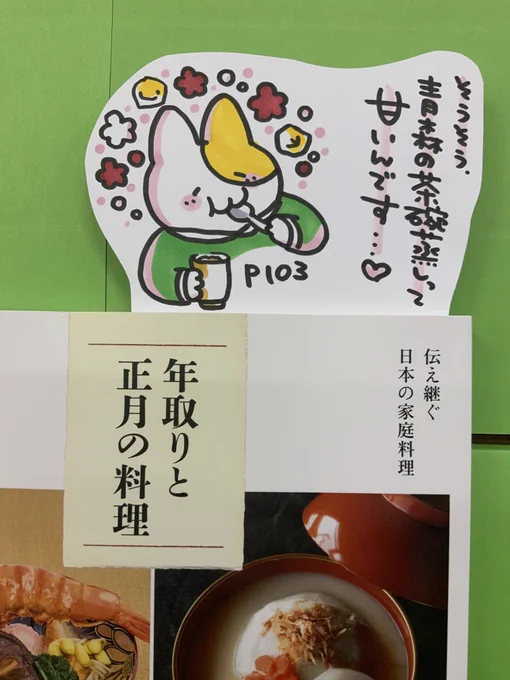 そうそう、
青森の茶碗蒸しって
甘いんです…♡
P103
伝え継ぐ
日本の家庭料理
年取りと
正月の料理